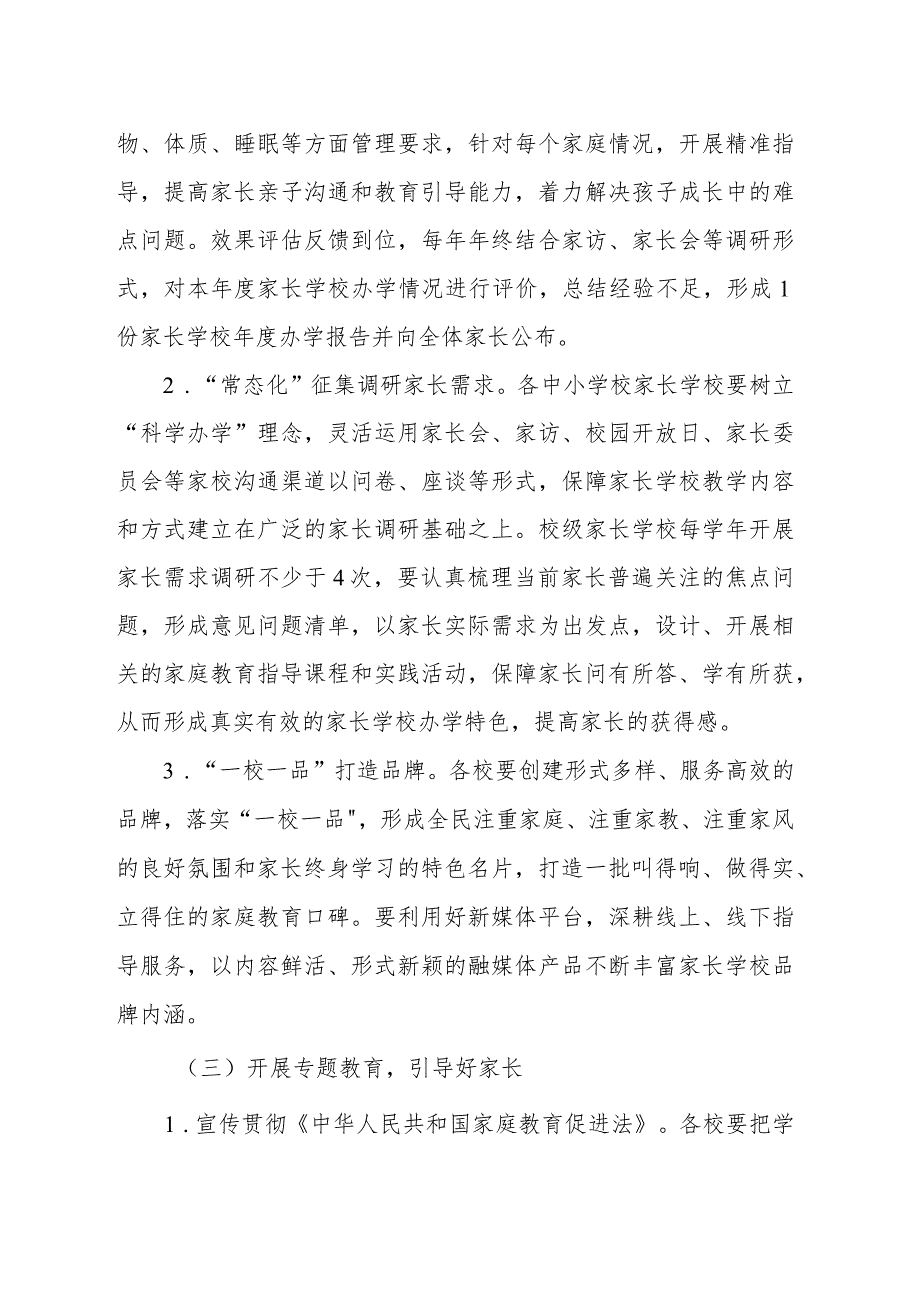 物、体质、睡眠等方面管理要求，针对每个家庭情况，开展精准指
导，提高家长亲子沟通和教育引导能力，着力解决孩子成长中的难
点问题。效果评估反馈到位，每年年终结合家访、家长会等调研形
式，对本年度家长学校办学情况进行评价，总结经验不足，形成 1
份家长学校年度办学报告并向全体家长公布。
2 . “常态化”征集调研家长需求。各中小学校家长学校要树立
“科学办学”理念，灵活运用家长会、家访、校园开放日、家长委
员会等家校沟通渠道以问卷、座谈等形式，保障家长学校教学内容
和方式建立在广泛的家长调研基础之上。校级家长学校每学年开展
家长需求调研不少于 4 次，要认真梳理当前家长普遍关注的焦点问
题，形成意见问题清单，以家长实际需求为出发点，设计、开展相
关的家庭教育指导课程和实践活动，保障家长问有所答、学有所获，
从而形成真实有效的家长学校办学特色，提高家长的获得感。
3 . “一校一品”打造品牌。各校要创建形式多样、服务高效的
品牌，落实“一校一品"，形成全民注重家庭、注重家教、注重家风
的良好氛围和家长终身学习的特色名片，打造一批叫得响、做得实、
立得住的家庭教育口碑。要利用好新媒体平台，深耕线上、线下指
导服务，以内容鲜活、形式新颖的融媒体产品不断丰富家长学校品
牌内涵。
（三）开展专题教育，引导好家长
1 . 宣传贯彻《中华人民共和国家庭教育促进法》。各校要把学